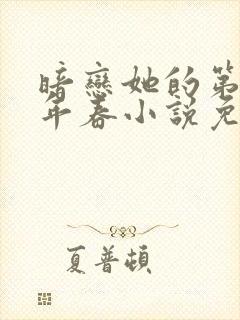 暗戀她的第
年春小說免
夏普頓